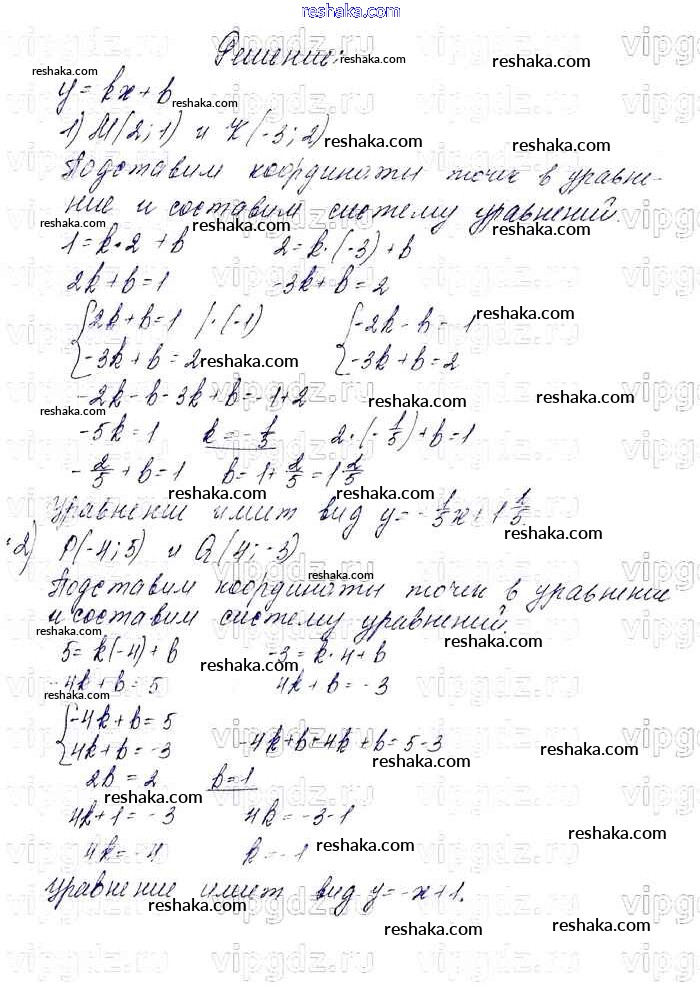 reshaka.com
Решение:
y = kx + b
1) М(2; 1) и К(-3; 2)
Подставим координаты точек в уравне-
ние и составим систему уравнений.
1 = k·2 + b 2 = k·(-3) + b
2k + b = 1 -3k + b = 2
{2k + b = 1 |·(-1) {-2k - b = -1
{-3k + b = 2 {-3k + b = 2
-2k - b - 3k + b = -1 + 2
-5k = 1 k = -1/5 2·(-1/5) + b = 1
-2/5 + b = 1 b = 1 + 2/5 = 1 2/5
Уравнение имеет вид y = -1/5x + 1 1/5.
2) P(-4; 5) и Q(4; -3)
Подставим координаты точек в уравнение
и составим систему уравнений.
5 = k(-4) + b -3 = k·4 + b
-4k + b = 5 4k + b = -3
{-4k + b = 5
{4k + b = -3 -4k + b + 4k + b = 5 - 3
2b = 2 b = 1
4k + 1 = -3 4k = -3 - 1
4k = -4 k = -1
Уравнение имеет вид y = -x + 1.